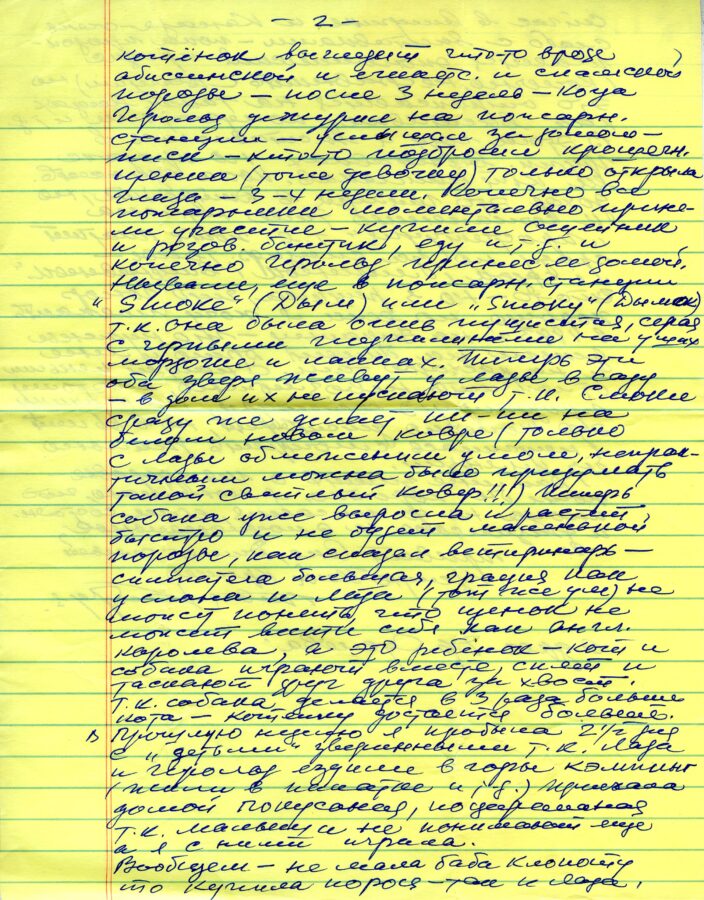 - 2 -
котёнок выглядит что-то вроде
абиссинской и смесь с сиамской
породы — после 3 недель — когда
Геральд дежурил на пожарн.
станции — услышал за домом —
писк — кто-то подбросил крошечн.
щенка (тоже девочку) только открыла
глаза — 3-4 недели. Конечно все
пожарники моментально приня-
ли участие — купили ошейник
и розов. бантик, еду и т.д. и
конечно Геральд принёс её домой.
Назвали, еще в пожарн. станции
"Smoke" (Дым) или "Smoky" (Дымок)
т.к. она была очень пушистая, серая
с чёрными подпалинами на ушах
мордочке и лапках. Теперь эти
оба зверя живут у Лады в саду
— в дом их не пускают т.к. Смоки
сразу же делает пи-пи на
белом новом ковре (только
с Лады обмеженим умом, непрак-
тичным можна было придумать
такой светлый ковер!!!) Теперь
собака уже выросла и растёт
быстро и не будет маленькой
породы, как сказал ветеринар —
симпатяга большая, грация как
у слона и Лада (тот же ум) не
может понять, что щенок не
может вести себя как англ.
королева, а это ребёнок — кот и
собака играют вместе, спят и
таскают друг друга за хвост.
Т.к. собака делается в 3 раза больше
кота — котёнку достаётся болевые.
В прошлую неделю я пробыла 2½ дня
с "детьми" звериными т.к. Лада
и Геральд ездили в горы кэмпинг
(жили в палатке и т.д.) приехала
домой покусаная, поцарапаная
т.к. малыши не понимают еще
а я с ними играла.
Вообщем — не мала баба клопоту
то купила порося — так и Лада.